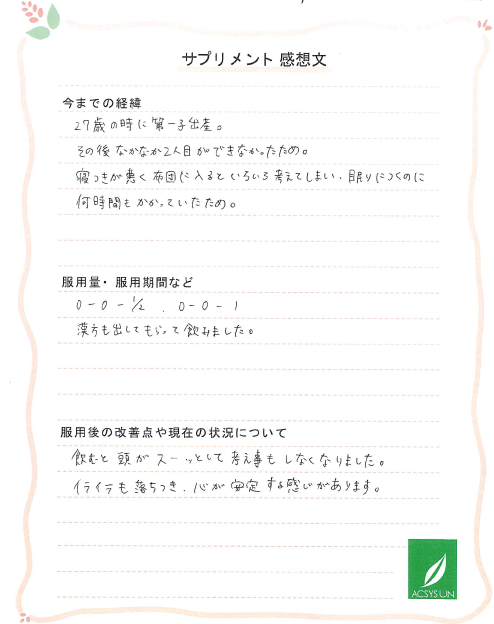 サプリメント 感想文
今までの経緯
27歳の時に第一子出産。
その後なかなか2人目ができなかったため。
寝つきが悪く布団に入るといろいろ考えてしまい、眠りにつくのに
何時間もかかっていたため。
服用量・服用期間など
0-0-1/2 . 0-0-1
漢方も出してもらって飲みました。
服用後の改善点や現在の状況について
飲むと頭がスーッとして考え事もしなくなりました。
イライラも落ちつき、心が安定する感じがあります。
ACSYS UN